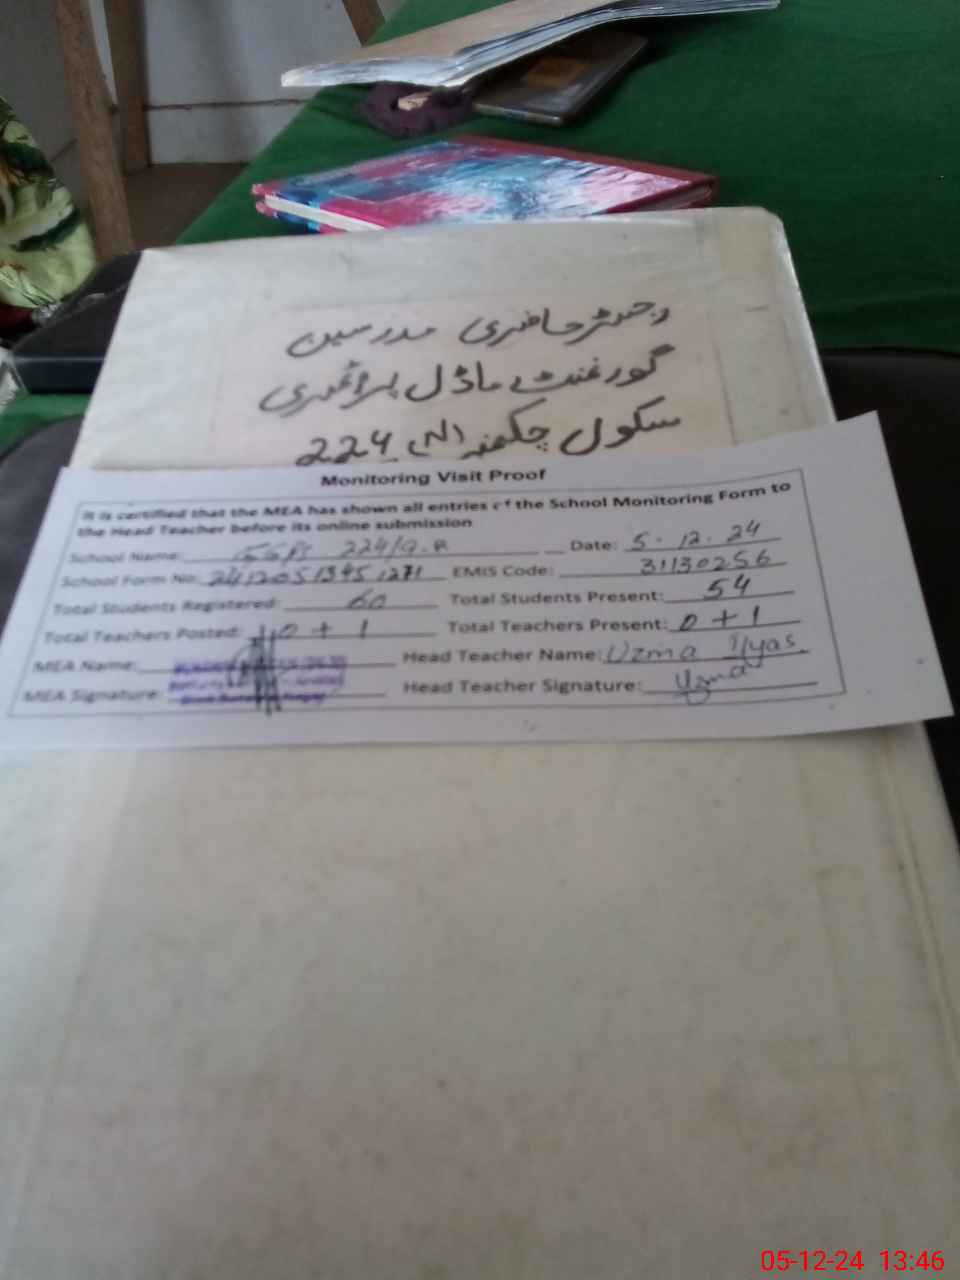 رجسٹر حاضری مدرسین
گورنمنٹ ماڈل پرائمری
سکول چک نمبر 224 (N)
Monitoring Visit Proof
It is certified that the MEA has shown all entries of the School Monitoring Form to
the Head Teacher before its online submission
School Name: 224/9.R Date: 5.12.24
School Form No: 24120513451271 EMIS Code: 31130256
Total Students Registered: 60 Total Students Present: 54
Total Teachers Posted: 0 + 1 Total Teachers Present: 0 + 1
MEA Name: Head Teacher Name: Uzma Ilyas
MEA Signature: Head Teacher Signature: Uzma
05-12-24 13:46